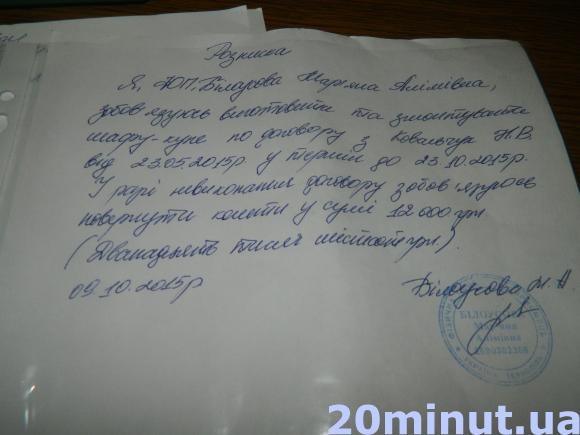 Розписка
Я, ЮП. Білоусова Мар'яна Алімівна,
зобов'язуюсь виготовити та змонтувати
шафу-купе по договору з Ковальчук Н.В.
від 23.05.2015р у термін до 23.10.2015р.
У разі невиконання договору зобов'язуюсь
повернути кошти у сумі 12 000 грн
(Дванадцять тисяч грн).
09.10.2015р
Білоусова М. А
БІЛОУСОВА
Мар'яна
Алімівна
20minut.ua